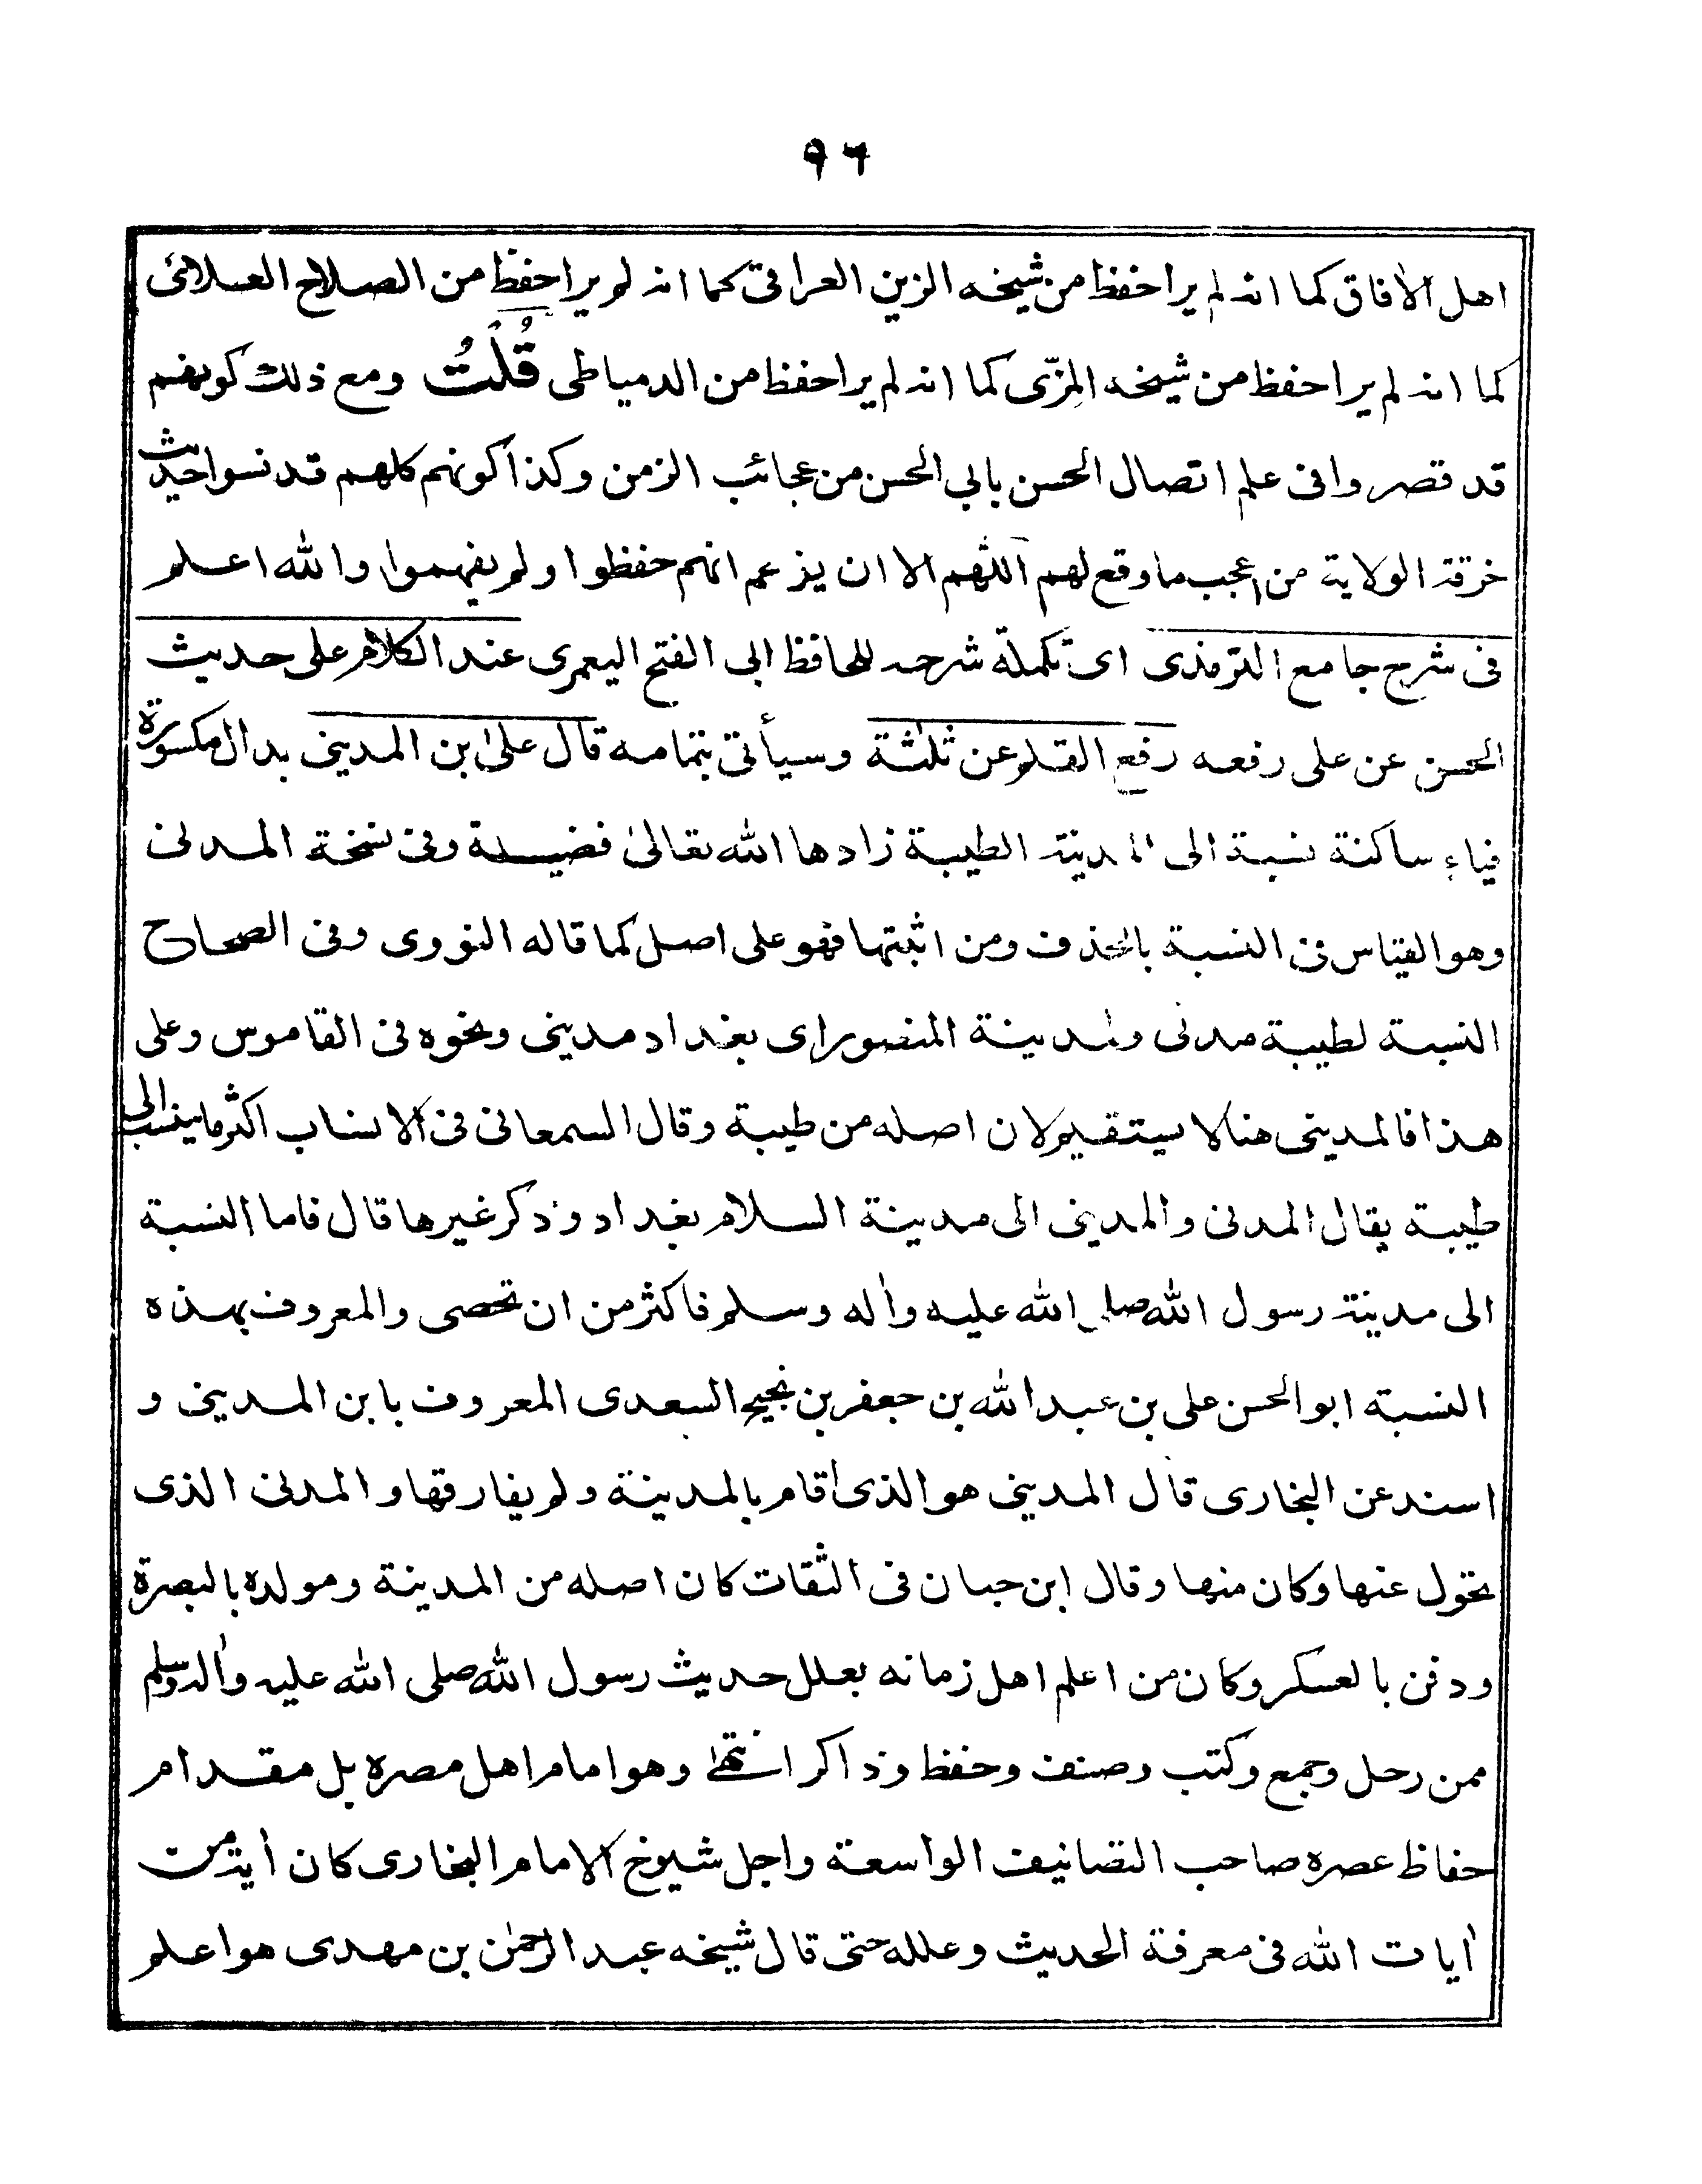 ٩٦
اهل الافاق كما انه لم ير احفظ من شيخه الزين العراقى كما انه لم ير احفظ من الصلاح العلائى
كما انه لم ير احفظ من شيخه المِزّى كما انه لم ير احفظ من الدمياطى قُلْتُ ومع ذلك كونهم
قد قصروا فى علم اتصال الحسن بابي الحسن من عجائب الزمن وكذا كونهم كلهم قد نسوا حديث
خرقة الولاية من اعجب ما وقع لهم اللّٰهم الا ان يزعم انهم حفظوا ولم يفهموا والله اعلم
فى شرح جامع الترمذى اى تكملة شرحه للحافظ ابى الفتح اليعمرى عند الكلام على حديث
الحسن عن على رفعه رفع القلم عن ثلٰثة وسيأتى بتمامه قال على ابن المدينى بدال مكسورة
فياء ساكنة نسبة الى المدينة الطيبة زادها الله تعالىٰ فضيلة وفى نسخة المدنى
وهو القياس فى النسبة بالحذف ومن اثبتها فهو على اصل كما قاله النووى وفى الصحاح
النسبة لطيبة مدنى ولمدينة المنصور اى بغداد مدينى ونحوه فى القاموس وعلى
هذا فالمدينى هنا لا يستقيم لان اصله من طيبة وقال السمعانى فى الانساب اكثر ما ينسب الى
طيبة يقال المدنى والمدينى الى مدينة السلام بغداد وذكر غيرها قال فاما النسبة
الى مدينة رسول الله صلى الله عليه واٰله وسلم فاكثر من ان تحصى والمعروف بهذه
النسبة ابو الحسن على بن عبد الله بن جعفر بن نجيح السعدى المعروف بابن المدينى و
اسند عن البخارى قال المدينى هو الذى أقام بالمدينة ولم يفارقها والمدنى الذى
تحول عنها وكان منها وقال ابن حبان فى الثقات كان اصله من المدينة ومولده بالبصرة
ودفن بالعسكر وكان من اعلم اهل زمانه بعلل حديث رسول الله صلى الله عليه واٰله وسلم
ممن رحل وجمع وكتب وصنف وحفظ وذاكر انتهىٰ وهو امام اهل مصره بل مقدام
حفاظ عصره صاحب التصانيف الواسعة واجل شيوخ الامام البخارى كان اٰية من
اٰيات الله فى معرفة الحديث وعلله حتى قال شيخه عبد الرحمٰن بن مهدى هو اعلم